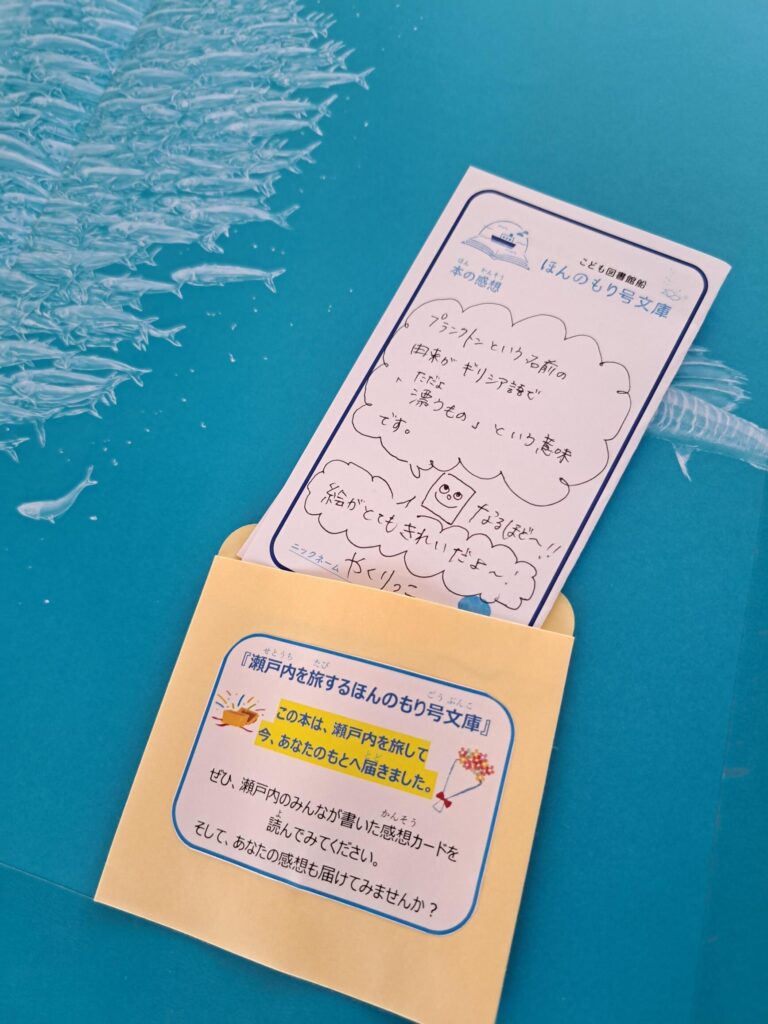 こども図書館船
ほんのもり号文庫
ほん かんそう
本の感想
プランクトンという名前の
由来が ギリシア語で
ただよ
「漂うもの」という意味
です。
なるほど〜!!
絵がとてもきれいだよ〜!
ニックネーム やくりっこ
せとうち たび ごう ぶんこ
『瀬戸内を旅するほんのもり号文庫』
この本は、瀬戸内を旅して
とど
今、あなたのもとへ届きました。
ぜひ、瀬戸内のみんなが書いた感想カードを
かんそう
よ
読んでみてください。
そして、あなたの感想も届けてみませんか?